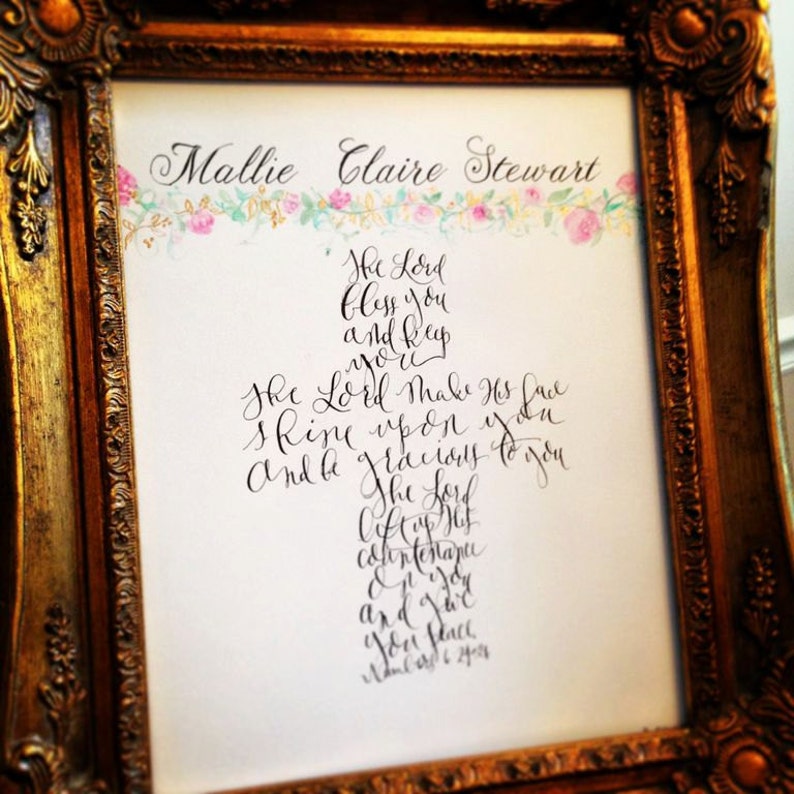 Mallie Claire Stewart
The Lord
bless you
and keep
you
The Lord make His face
shine upon you
and be gracious to you
The Lord
lift up His
countenance
on you
and give
you peace.
Numbers 6:24-26